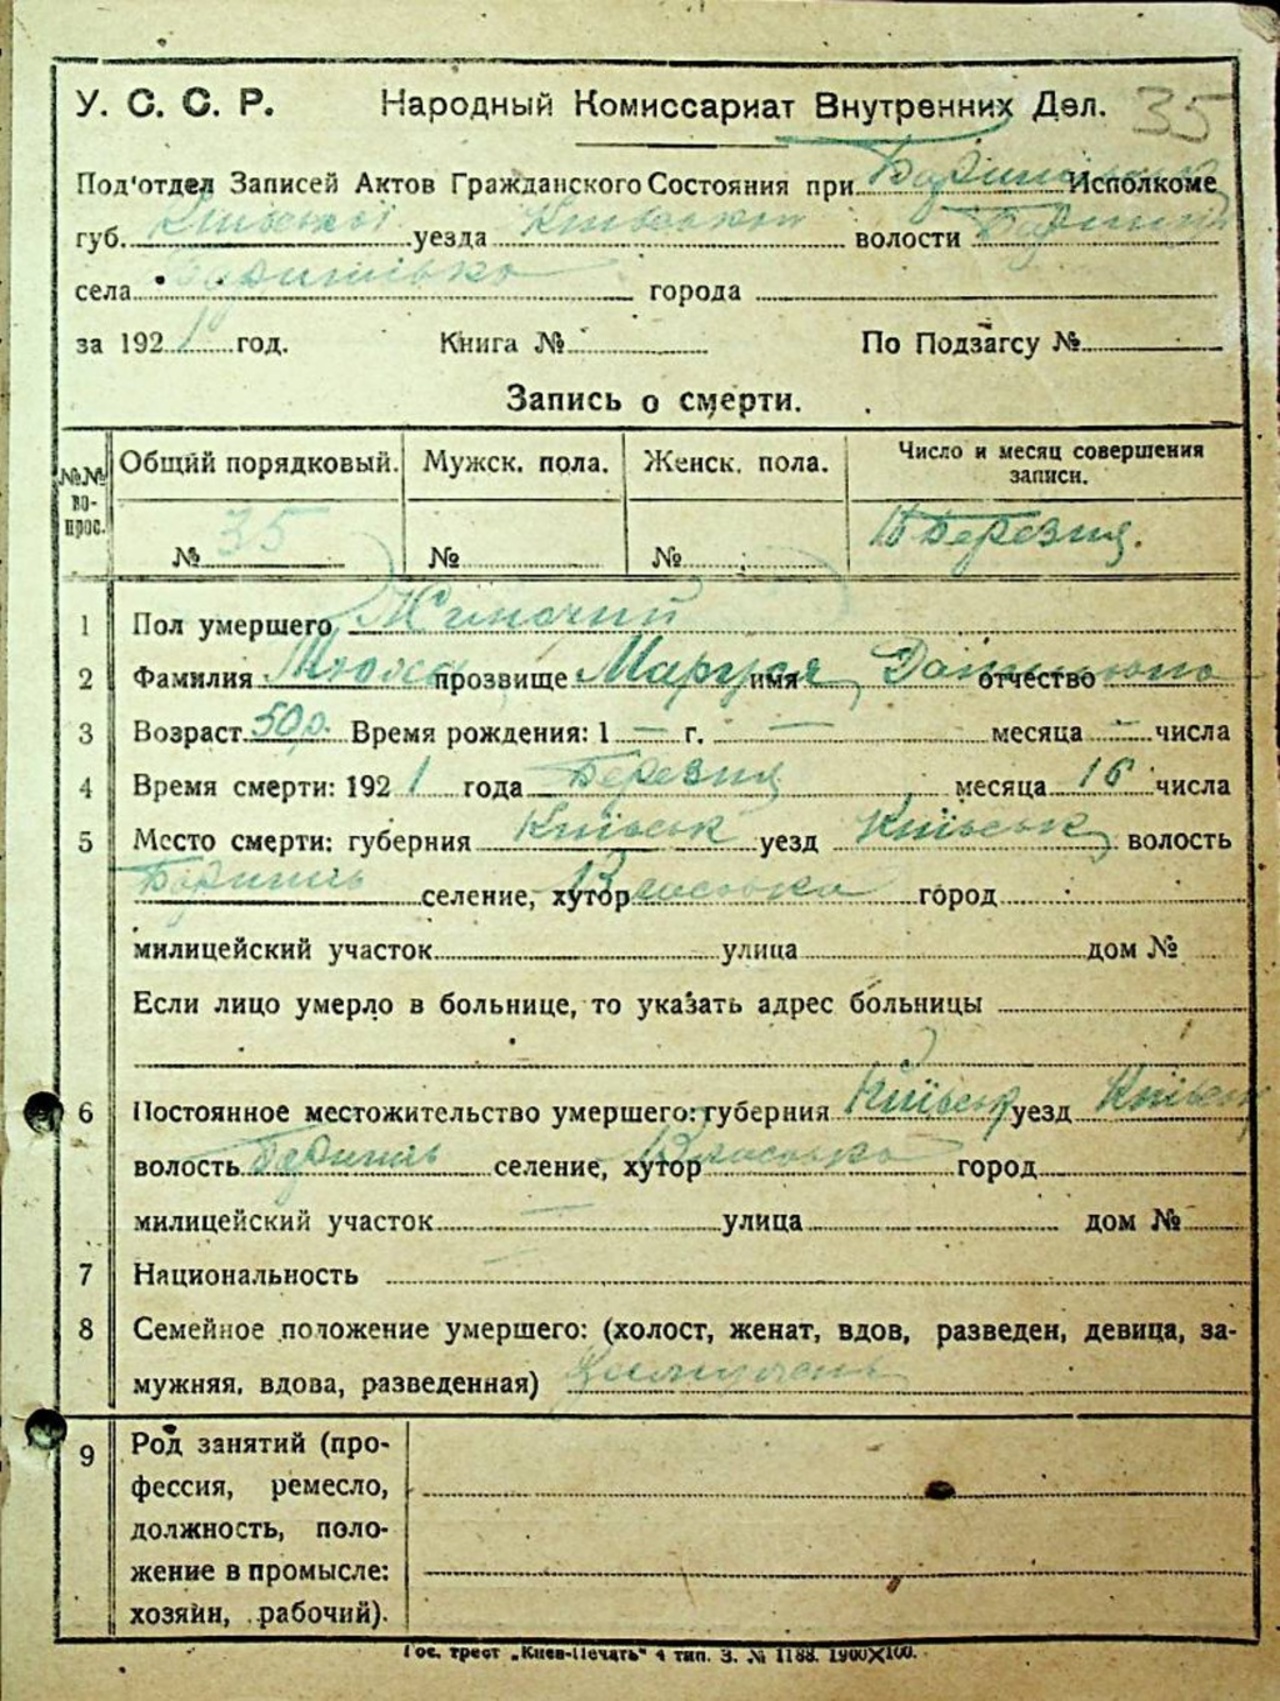 У. С. С. Р. Народный Комиссариат Внутренних Дел. 35
Под'отдел Записей Актов Гражданского Состояния при Исполкоме
губ. Київської уезда Київської волости
села города
за 1921 год. Книга № По Подзагсу №
Запись о смерти.
№№ вопрос. Общий порядковый. Мужск. пола. Женск. пола. Число и месяц совершения записи.
№ 35 № № Березня.
1 Пол умершего Жиночий
2 Фамилия прозвище Маруся имя отчество
3 Возраст 50 р. Время рождения: 1 — г. — месяца — числа
4 Время смерти: 1921 года Березня месяца 16 числа
5 Место смерти: губерния Київськ уезд Київськ волость
Бориспіль селение, хутор Власовка город
милицейский участок улица дом №
Если лицо умерло в больнице, то указать адрес больницы
6 Постоянное местожительство умершего: губерния Київськ уезд Київськ
волость Бориспіль селение, хутор Власовка город
милицейский участок — улица дом №
7 Национальность —
8 Семейное положение умершего: (холост, женат, вдов, разведен, девица, за-
мужняя, вдова, разведенная)
9 Род занятий (про-
фессия, ремесло,
должность, поло-
жение в промысле:
хозяин, рабочий).
Гос. трест „Киев-Печать" 4 тип. З. № 1188. 1900X100.